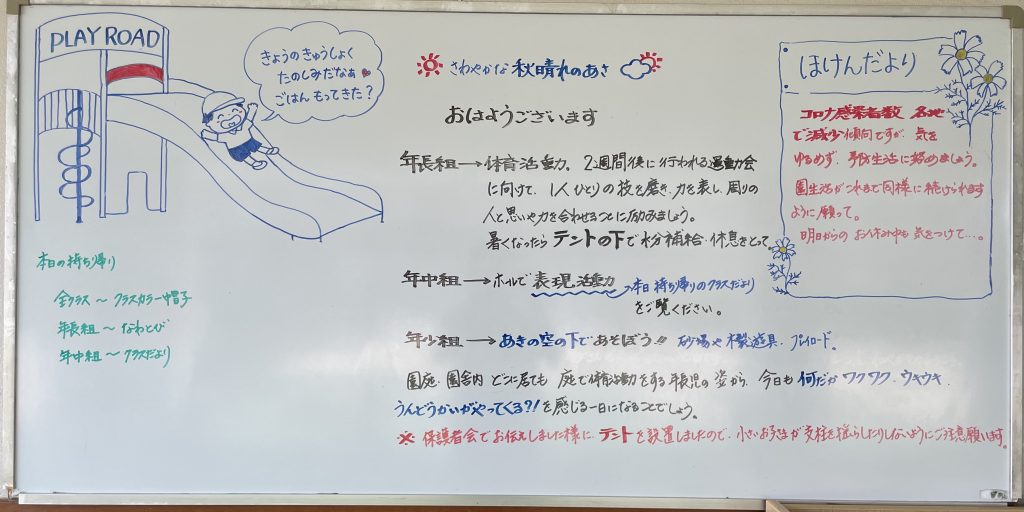 PLAY ROAD
きょうのきゅうしょく
たのしみだなぁ
ごはん もってきた？
さわやかな 秋晴れのあさ
おはようございます
年長組→体育活動。2週間後に行われる運動会
に向けて、1人ひとりの技を磨き、力を表し、周りの
人と思いや力を合わせることに励みましょう。
暑くなったら テントの下で水分補給・休息をとって。
年中組→ホールで表現活動→本日持ち帰りのクラスだより
をご覧ください。
年少組→あきの空の下であそぼう!! 砂場や木製遊具・プレイロード。
園庭・園舎内 どこに居ても 庭で体育活動をする年長児の姿から、今日も何だかワクワク・ウキウキ、
うんどうかいがやってくる?!を感じる一日になることでしょう。
※ 保護者会でお伝えしました様に テントを設置しましたので、小さいお子さまが支柱を揺らしたりしないようにご注意願います。
ほけんだより
コロナ感染者数 各地
で減少傾向ですが、気を
ゆるめず、予防生活に努めましょう。
園生活がこれまで同様に続けられます
ように願って。
明日からのお休み中も気をつけて…。
本日の持ち帰り
全クラス〜クラスカラー帽子
年長組〜なわとび
年中組〜クラスだより